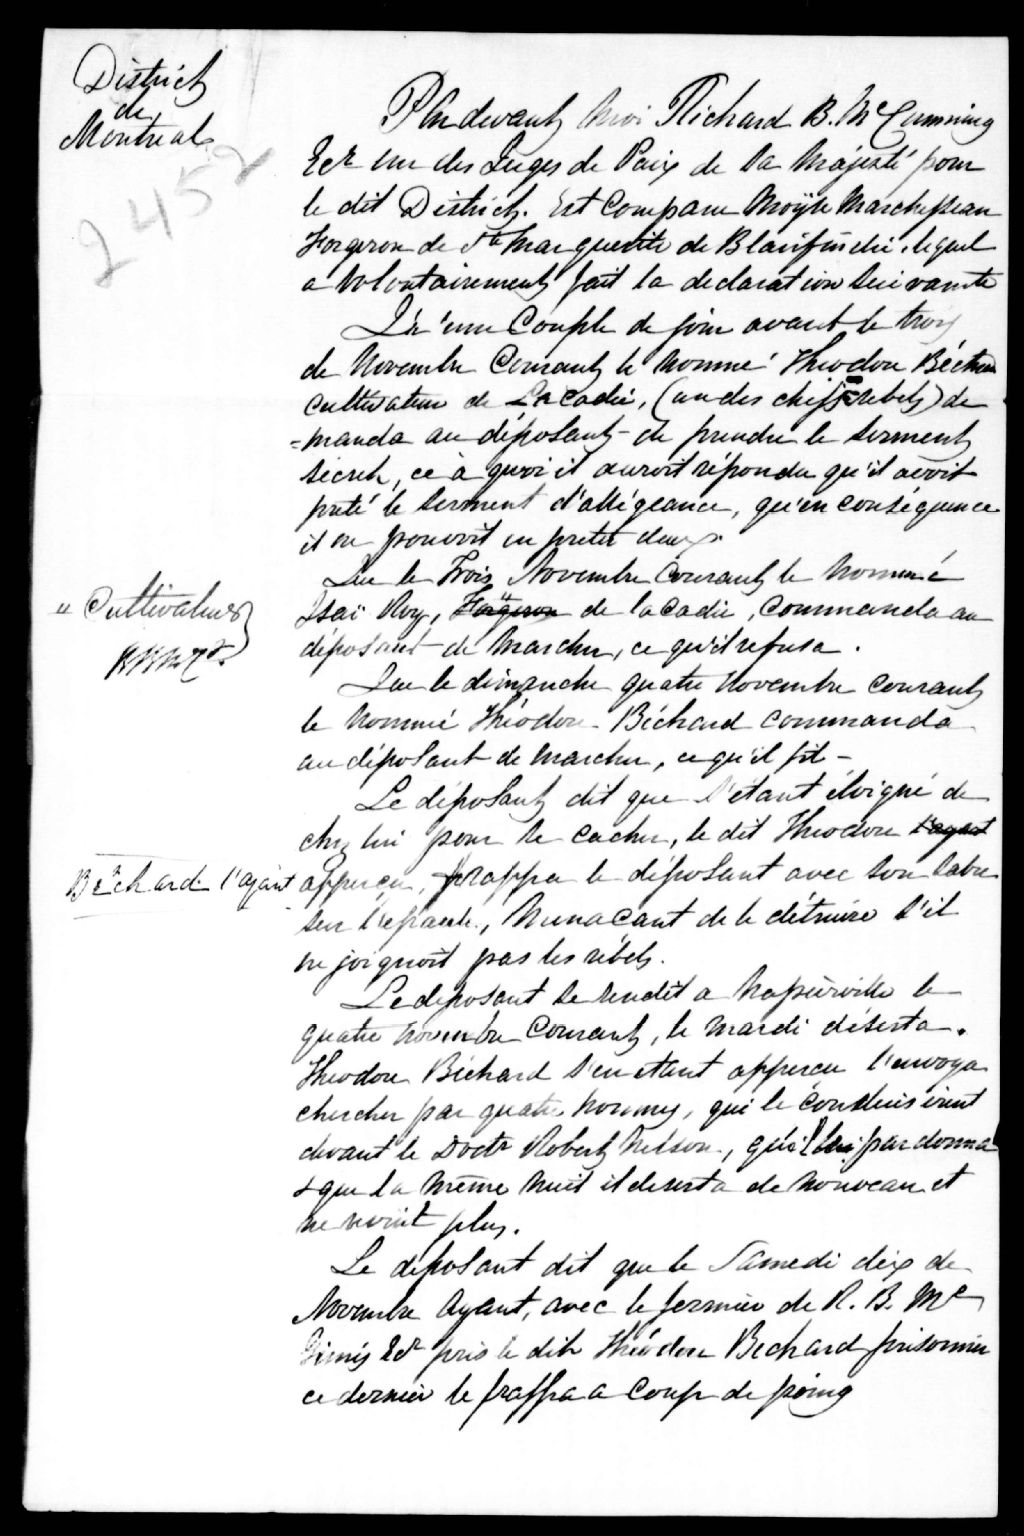 District
de
Montréal
2452
Pardevant Moi Richard B. McCumming
Ecr un des Juges de Paix de Sa Majesté pour
le dit District. Est Comparu Moÿse Marchesseau
Forgeron de Ste Marguerite de Blairfindie, lequel
a volontairement fait la declaration Suivante
Qu'une Couple de jour avant le trois
de Novembre Courant le nommé Theodore Béchard
Cultivateur de Lacadie, (un des chefs rebels) de
=manda au déposant de prendre le Serment
Secret, ce à quoi il auroit répondu qu'il avoit
preté le Serment d'allégeance, qu'en conséquence
il ne pouvoit en preter deux.
Que le Trois Novembre Courant le Nommé
" Cultivateur
Isaï Roy, Forgeron de Lacadie, Commanda au
déposant de Marcher, ce qu'il refusa.
Que le dimanche quatre Novembre Courant
le Nommé Théodore Béchard Commanda
au déposant de Marcher, ce qu'il fit -
Le déposant dit que S'étant éloigné de
chez lui pour se cacher, le dit Theodore l'ayant
Béchard l'ajant
apperçu, frappa le déposant avec son Sabre
Sur l'épaule, Menaçant de le détruire S'il
ne joignoit pas les rébels.
Le deposant se rendit a Napierville le
quatre Novembre Courant, le Mardi déserta.
Theodore Béchard S'en etant apperçu l'envoya
chercher par quatre hommes, qui le conduisirent
devant le Doctr Robert Nelson, qui lui pardonna
& que la Même Nuit il deserta de Nouveau et
ne revint plus.
Le déposant dit que le Samedi dix de
Novembre Ayant, avec le fermier de R. B. Mc
Ginnis Ecr pris le dit Théodore Bechard prisonnier
ce dernier le frappa a Coup de poing